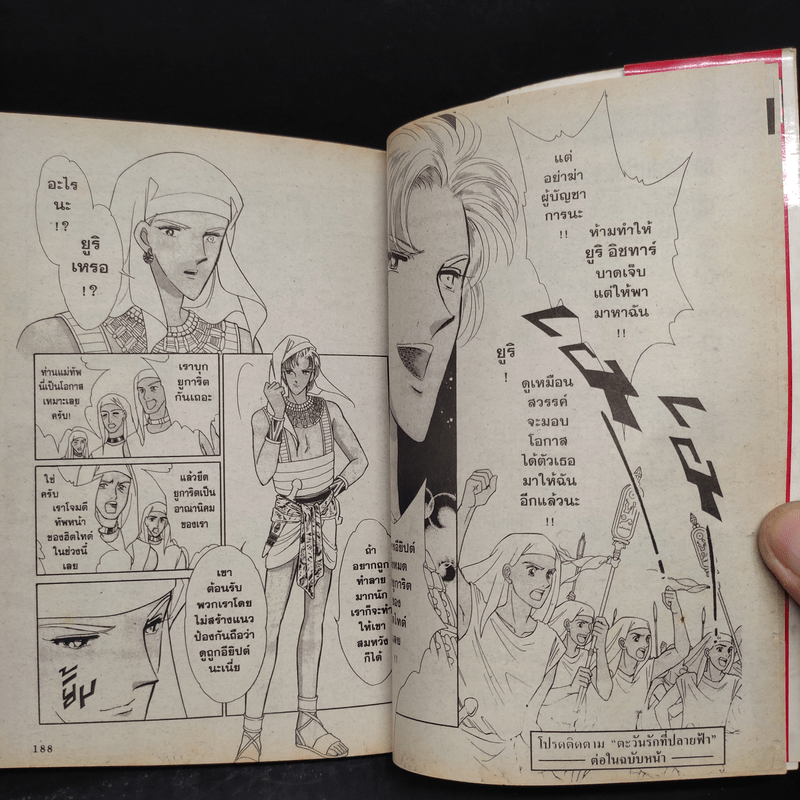 อะไร
นะ
!?
ยูริ
เหรอ
!?
เราบุก
ยูการิต
กันเถอะ
ท่านแม่ทัพ
นี่เป็นโอกาส
เหมาะเลย
ครับ!
แล้วยึด
ยูการิตเป็น
อาณานิคม
ของเรา
ใช่
ครับ
เราโจมตี
ทัพหน้า
ของฮิตไทต์
ในช่วงนี้
เลย
ยิ้ม
เขา
ต้อนรับ
พวกเราโดย
ไม่สร้างแนว
ป้องกันถือว่า
ดูถูกอียิปต์
นะเนี่ย
ถ้า
อยากถูก
ทำลาย
มากนัก
เราก็จะทำ
ให้เขา
สมหวัง
ก็ได้
188
แต่
อย่าฆ่า
ผู้บัญชา
การนะ
!!
ห้ามทำให้
ยูริ อิชทาร์
บาดเจ็บ
แต่ให้พา
มาหาฉัน
!!
ยูริ
!
ดูเหมือน
สวรรค์
จะมอบ
โอกาส
ได้ตัวเธอ
มาให้ฉัน
อีกแล้วนะ
!!
เฮ
เฮ
โปรดติดตาม "ตะวันรักที่ปลายฟ้า"
ต่อในฉบับหน้า